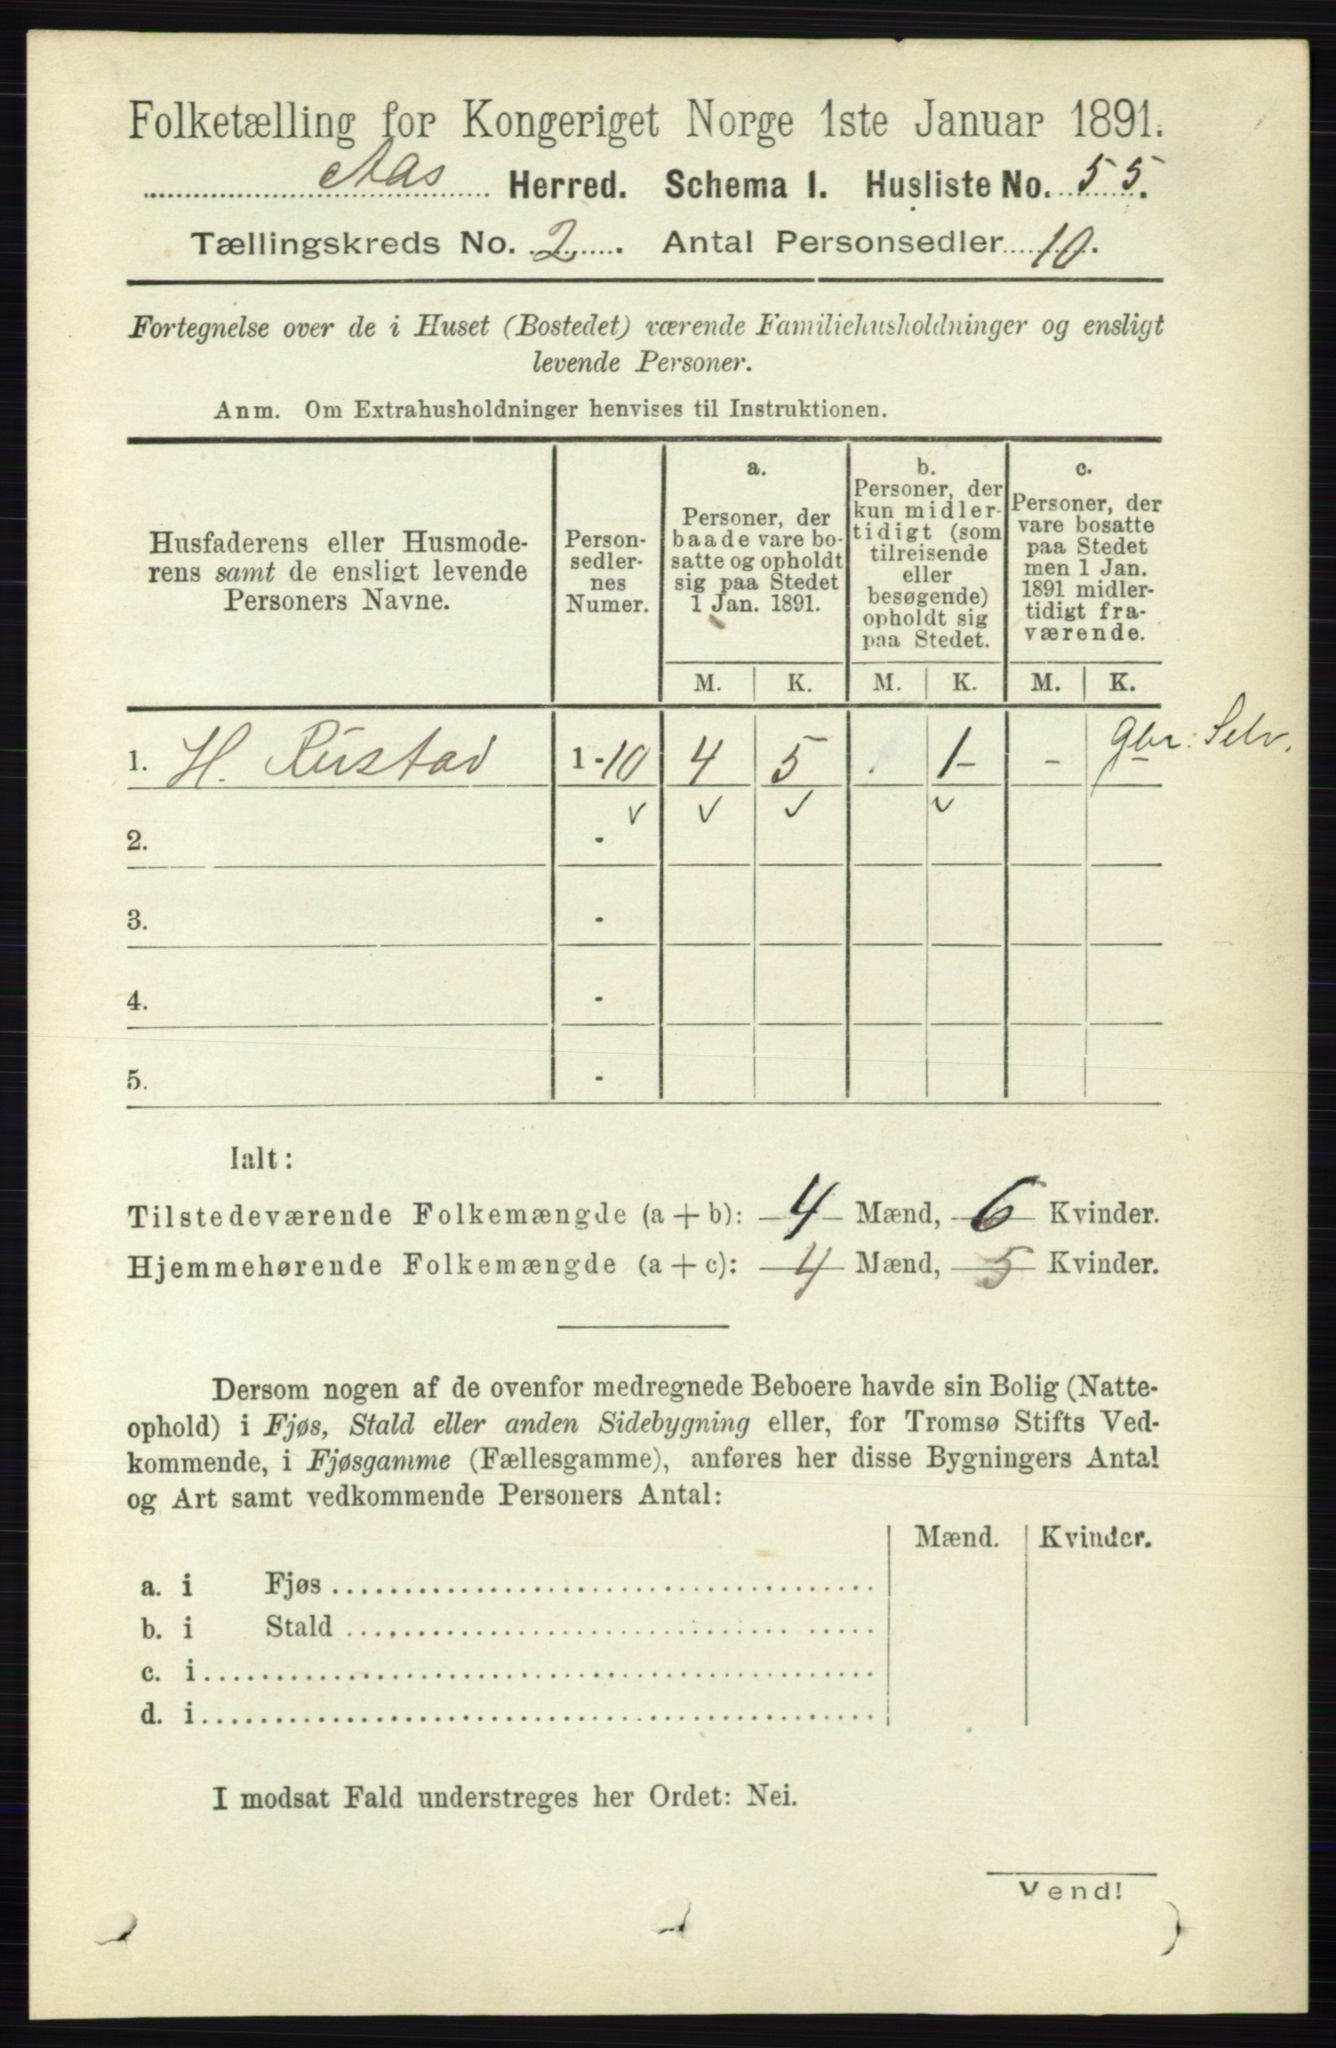 Folketælling for Kongeriget Norge 1ste Januar 1891.
Aas Herred. Schema I. Husliste No. 55.
Tællingskreds No. 2. Antal Personsedler 10.
Fortegnelse over de i Huset (Bostedet) værende Familiehusholdninger og ensligt
levende Personer.
Anm. Om Extrahusholdninger henvises til Instruktionen.
Husfaderens eller Husmode-
rens samt de ensligt levende
Personers Navne.
Person-
sedler-
nes
Numer.
a.
Personer, der
baade vare bo-
satte og opholdt
sig paa Stedet
1 Jan. 1891.
b.
Personer, der
kun midler-
tidigt (som
tilreisende
eller
besøgende)
opholdt sig
paa Stedet.
c.
Personer, der
vare bosatte
paa Stedet
men 1 Jan.
1891 midler-
tidigt fra-
værende.
M. K. M. K. M. K.
1. H. Rustad 1-10 4 5 . 1 - - gbr. Selv.
2. -
3. -
4. -
5. -
Ialt:
Tilstedeværende Folkemængde (a + b): 4 Mænd, 6 Kvinder.
Hjemmehørende Folkemængde (a + c): 4 Mænd, 5 Kvinder.
Dersom nogen af de ovenfor medregnede Beboere havde sin Bolig (Natte-
ophold) i Fjøs, Stald eller anden Sidebygning eller, for Tromsø Stifts Ved-
kommende, i Fjøsgamme (Fællesgamme), anføres her disse Bygningers Antal
og Art samt vedkommende Personers Antal:
Mænd. Kvinder.
a. i Fjøs
b. i Stald
c. i
d. i
I modsat Fald understreges her Ordet: Nei.
Vend!